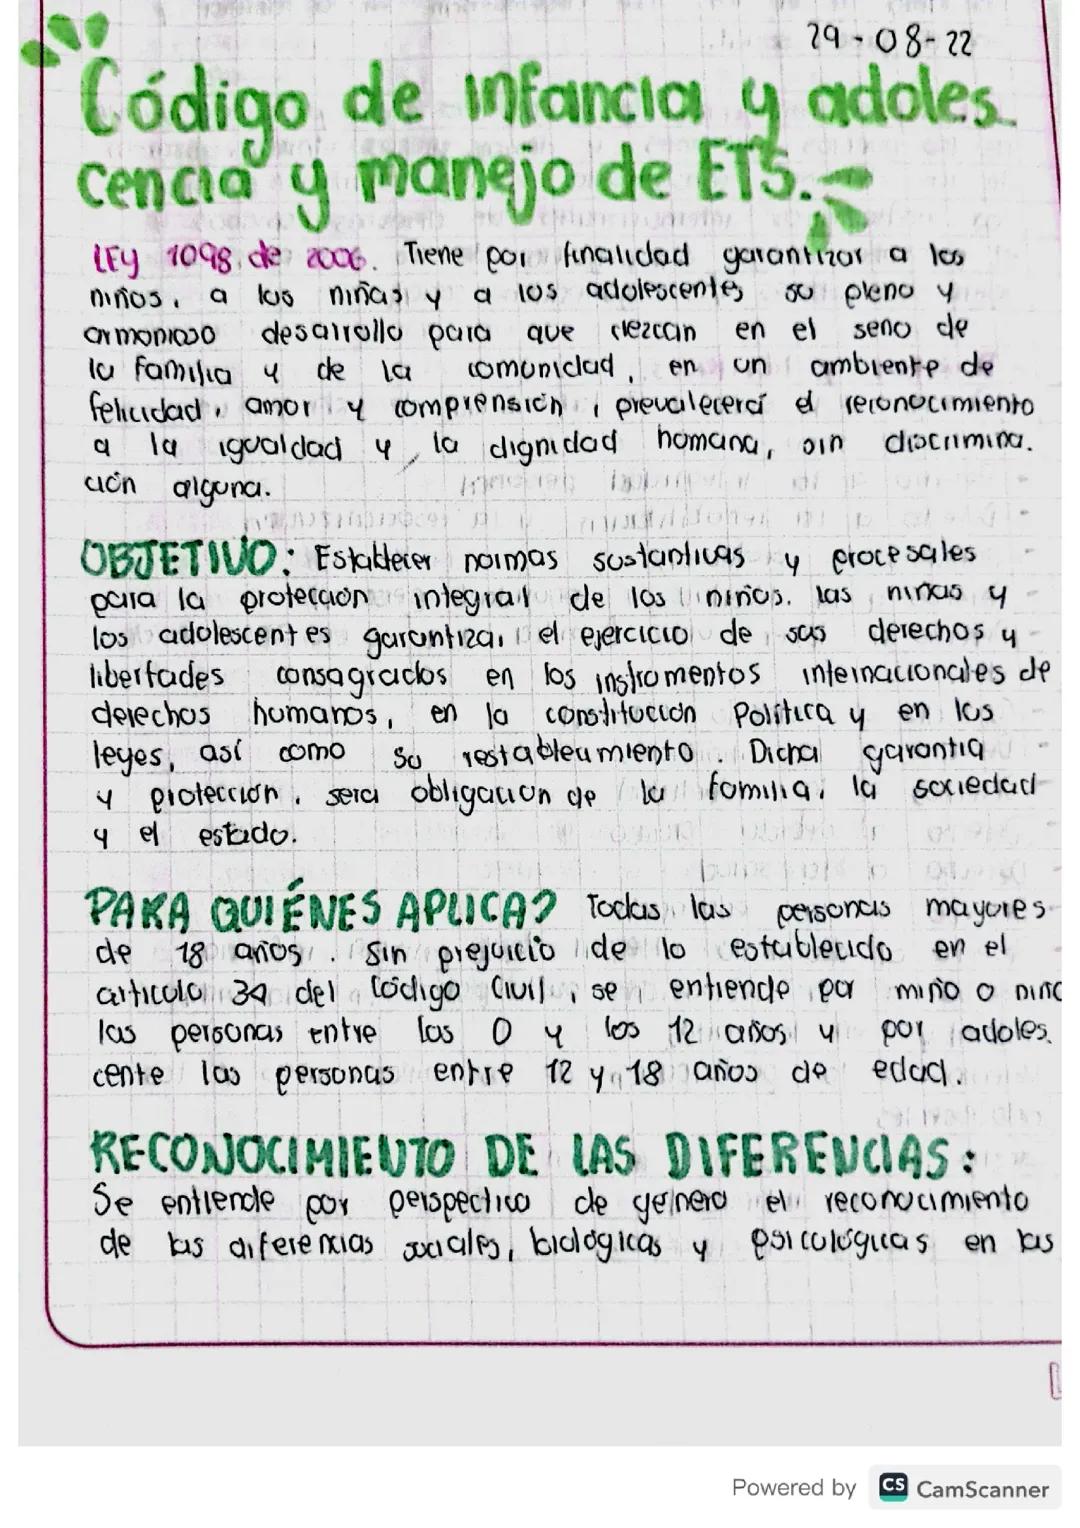 29-08-22
Código de infancia y adoles
cencia y manejo de ETS.
LEY 1098 de 2006. Tiene por finalidad garantizar a los
niños, a las niñas y a los adolescentes su pleno y
armonioso desarrollo para que crezcan en el seno de
la familia y de la comunidad, en un ambiente de
felicidad, amor y comprensión, prevalecerá el reconocimiento
a la igualdad y la dignidad humana, sin discrimina.
ción alguna.
OBJETIVO: Establecer normas sustantivas y procesales
para la protección integral de los niños, las niñas y
los adolescentes garantizar el ejercicio de sus derechos y
libertades consagrados en los instrumentos internacionales de
derechos humanos, en la constitución Política y en las
leyes, así como su restablecimiento. Dicha garantía
y protección, será obligación de la familia, la sociedad
y el estado.
PARA QUIÉNES APLICA? Todas las personas mayores
de 18 años. Sin prejuicio de lo establecido en el
articulo 34 del Código Civil, se entiende por niño o niña
las personas entre los 0 y los 12 años y por adoles.
cente las personas entre 12 y 18 años de edad.
RECONOCIMIENTO DE LAS DIFERENCIAS:
Se entiende por perspectiva de género el reconocimiento
de las diferencias sociales, biológicas y psicológicas en las
Powered by CS CamScanner